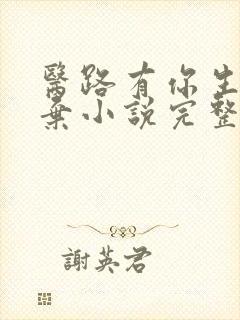 醫路有你生
棄小說完整
謝英君